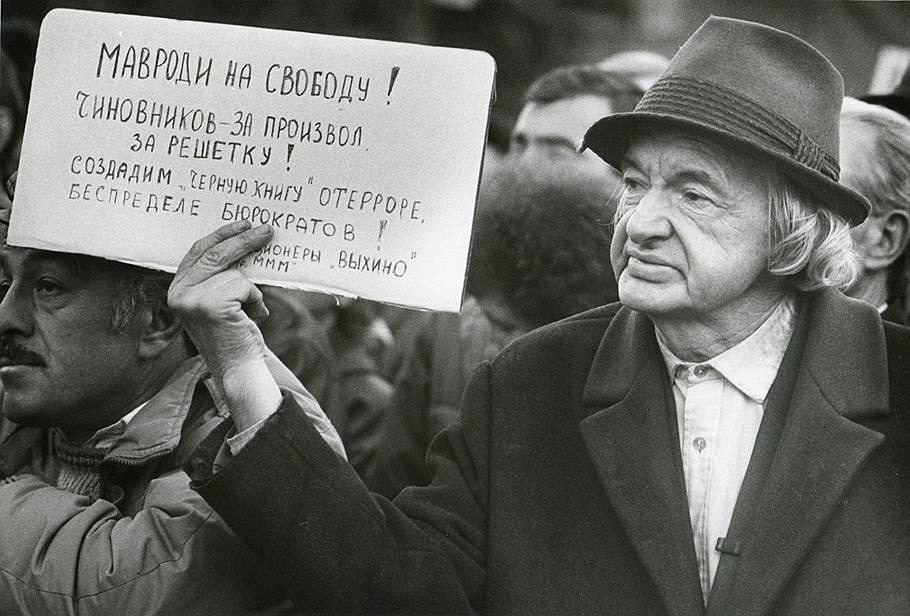 МАВРОДИ НА СВОБОДУ !
ЧИНОВНИКОВ-ЗА ПРОИЗВОЛ
ЗА РЕШЕТКУ !
СОЗДАДИМ „ЧЕРНУЮ КНИГУ" О ТЕРРОРЕ,
БЕСПРЕДЕЛЕ БЮРОКРАТОВ !
"ВЫХИНО"
МММ"